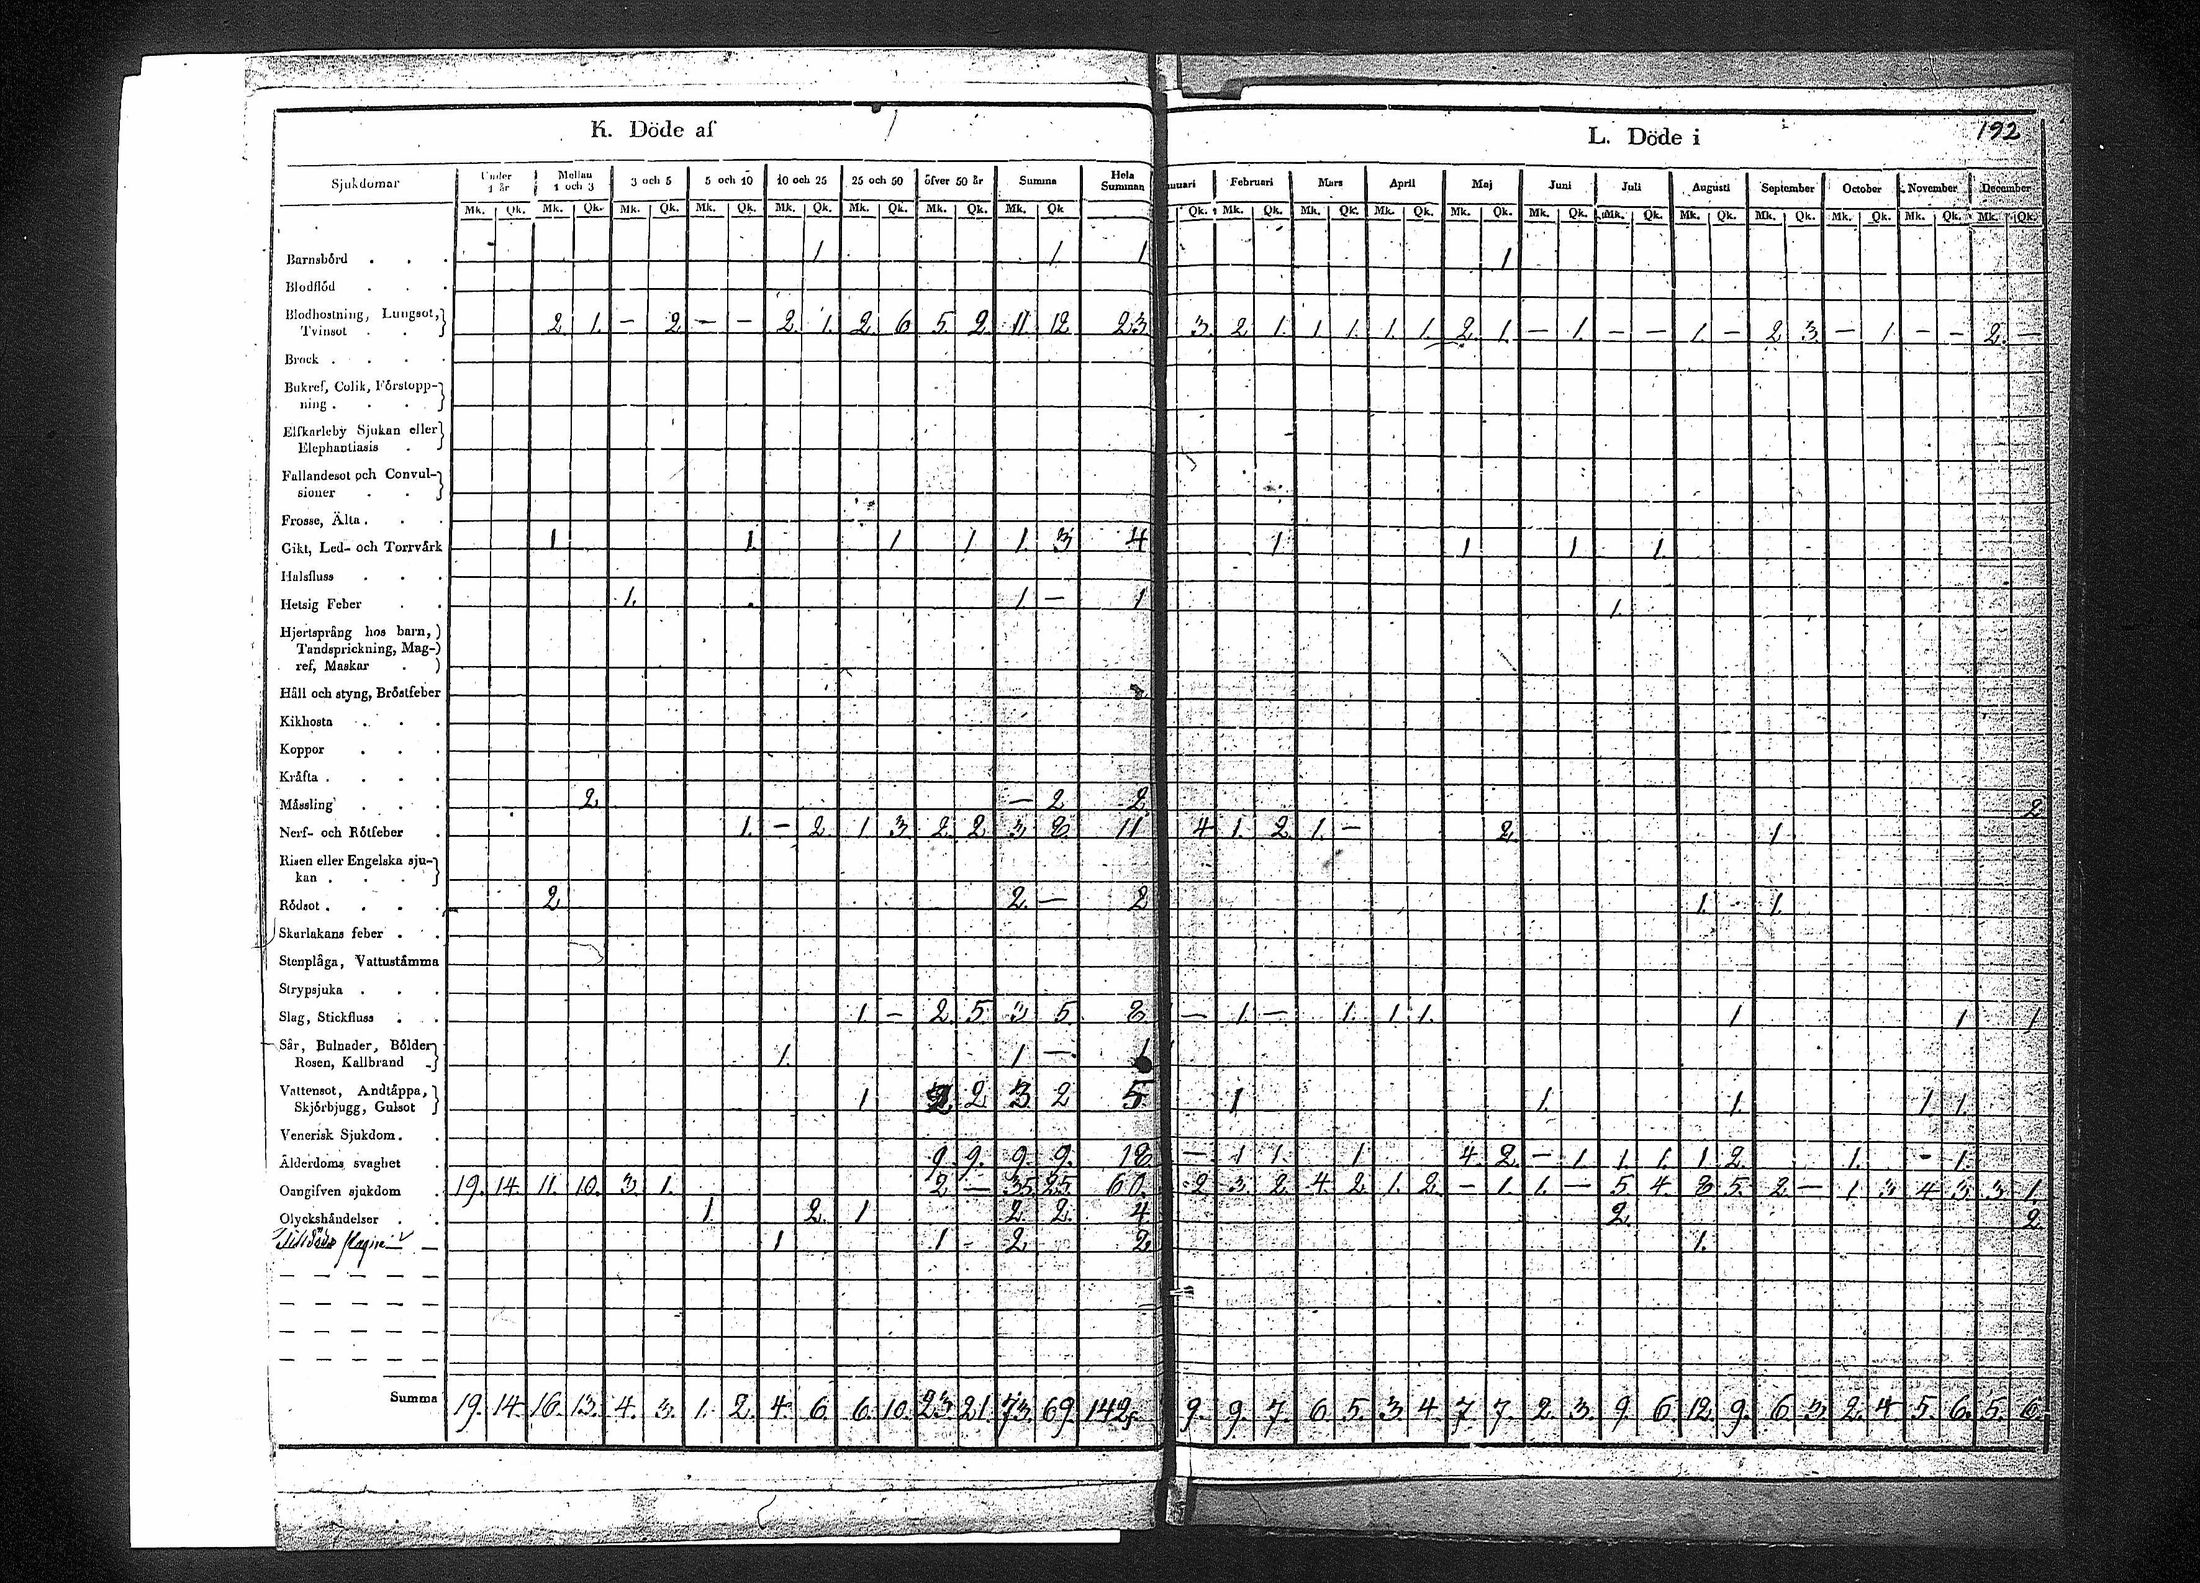 K. Döde af
Sjukdomar Under 1 år Mellan 1 och 3 3 och 5 5 och 10 10 och 25 25 och 50 öfver 50 år Summa Hela Summan
Mk. Qk. Mk. Qk. Mk. Qk. Mk. Qk. Mk. Qk. Mk. Qk. Mk. Qk. Mk. Qk
Barnsbörd . . . 1 1 1
Blodflöd . . .
Blodhostning, Lungsot,
Tvinsot . . 2. 1. — 2 — — 2. 1. 2. 6 5. 2. 11. 12. 23
Brock . . . .
Bukref, Colik, Förstopp-
ning . . . .
Elfkarleby Sjukan eller
Elephantiasis .
Fallandesot och Convul-
sioner . . .
Frosse, Älta . . .
Gikt, Led- och Torrvärk 1 1. 1 1 1. 3 4
Halsfluss . . .
Hetsig Feber . . 1. 1 — 1
Hjertsprång hos barn,
Tandsprickning, Mag-
ref, Maskar .
Håll och styng, Bröstfeber
Kikhosta . . .
Koppor . . .
Kräfta . . . .
Måssling . . . 2. — 2 2
Nerf- och Rötfeber . 1. — 2. 1 3. 2. 2 3. 8 11
Risen eller Engelska sju-
kan . . . .
Rödsot . . . . 2 2. — 2
Skarlakans feber . .
Stenplåga, Vattustämma
Strypsjuka . . .
Slag, Stickfluss . . 1. — 2. 5. 3 5. 8
Sår, Bulnader, Bölder
Rosen, Kallbrand 1. 1 — 1
Vattensot, Andtäppa,
Skjörbjugg, Gulsot 1 2 2 3. 2 5
Venerisk Sjukdom . .
Ålderdoms svaghet . 9. 9. 9. 9. 18
Oangifven sjukdom . 19. 14. 11. 10. 3. 1. 2. — 35 25. 60.
Olyckshändelser . . 1. 2. 1 2. 2. 4.
1 1 - 2. 2
Summa 19. 14. 16. 13. 4. 3. 1. 2. 4. 6. 6. 10. 23. 21. 73. 69. 142
L. Döde i 192
nuari Februari Mars April Maj Juni Juli Augusti September October November December
Qk. Mk. Qk. Mk. Qk. Mk. Qk. Mk. Qk. Mk. Qk. Mk. Qk. Mk. Qk. Mk. Qk. Mk. Qk. Mk. Qk. Mk. Qk.
1
3. 2. 1. 1. 1. 1. 1. 2. 1. — 1. — — 1. — 2 3. — 1 — — 2. —
1 1 1 1.
1.
2
4 1. 2 1. — 2. 1
1. 1.
— 1. — 1. 1. 1. 1 1 1
1 1. 1. 1 1.
— 1 1. 1 4. 2. — 1 1. 1. 1 2. 1. - 1.
2. 3. 2. 4. 2. 1. 2. — 1. 1. — 5. 4. 8 5. 2. — 1. 3 4. 3. 3. 1.
2. 2.
1.
9. 9. 7. 6 5. 3. 4. 7. 7. 2. 3. 9. 6. 12. 9. 6. 3. 2. 4. 5. 6. 5. 6.